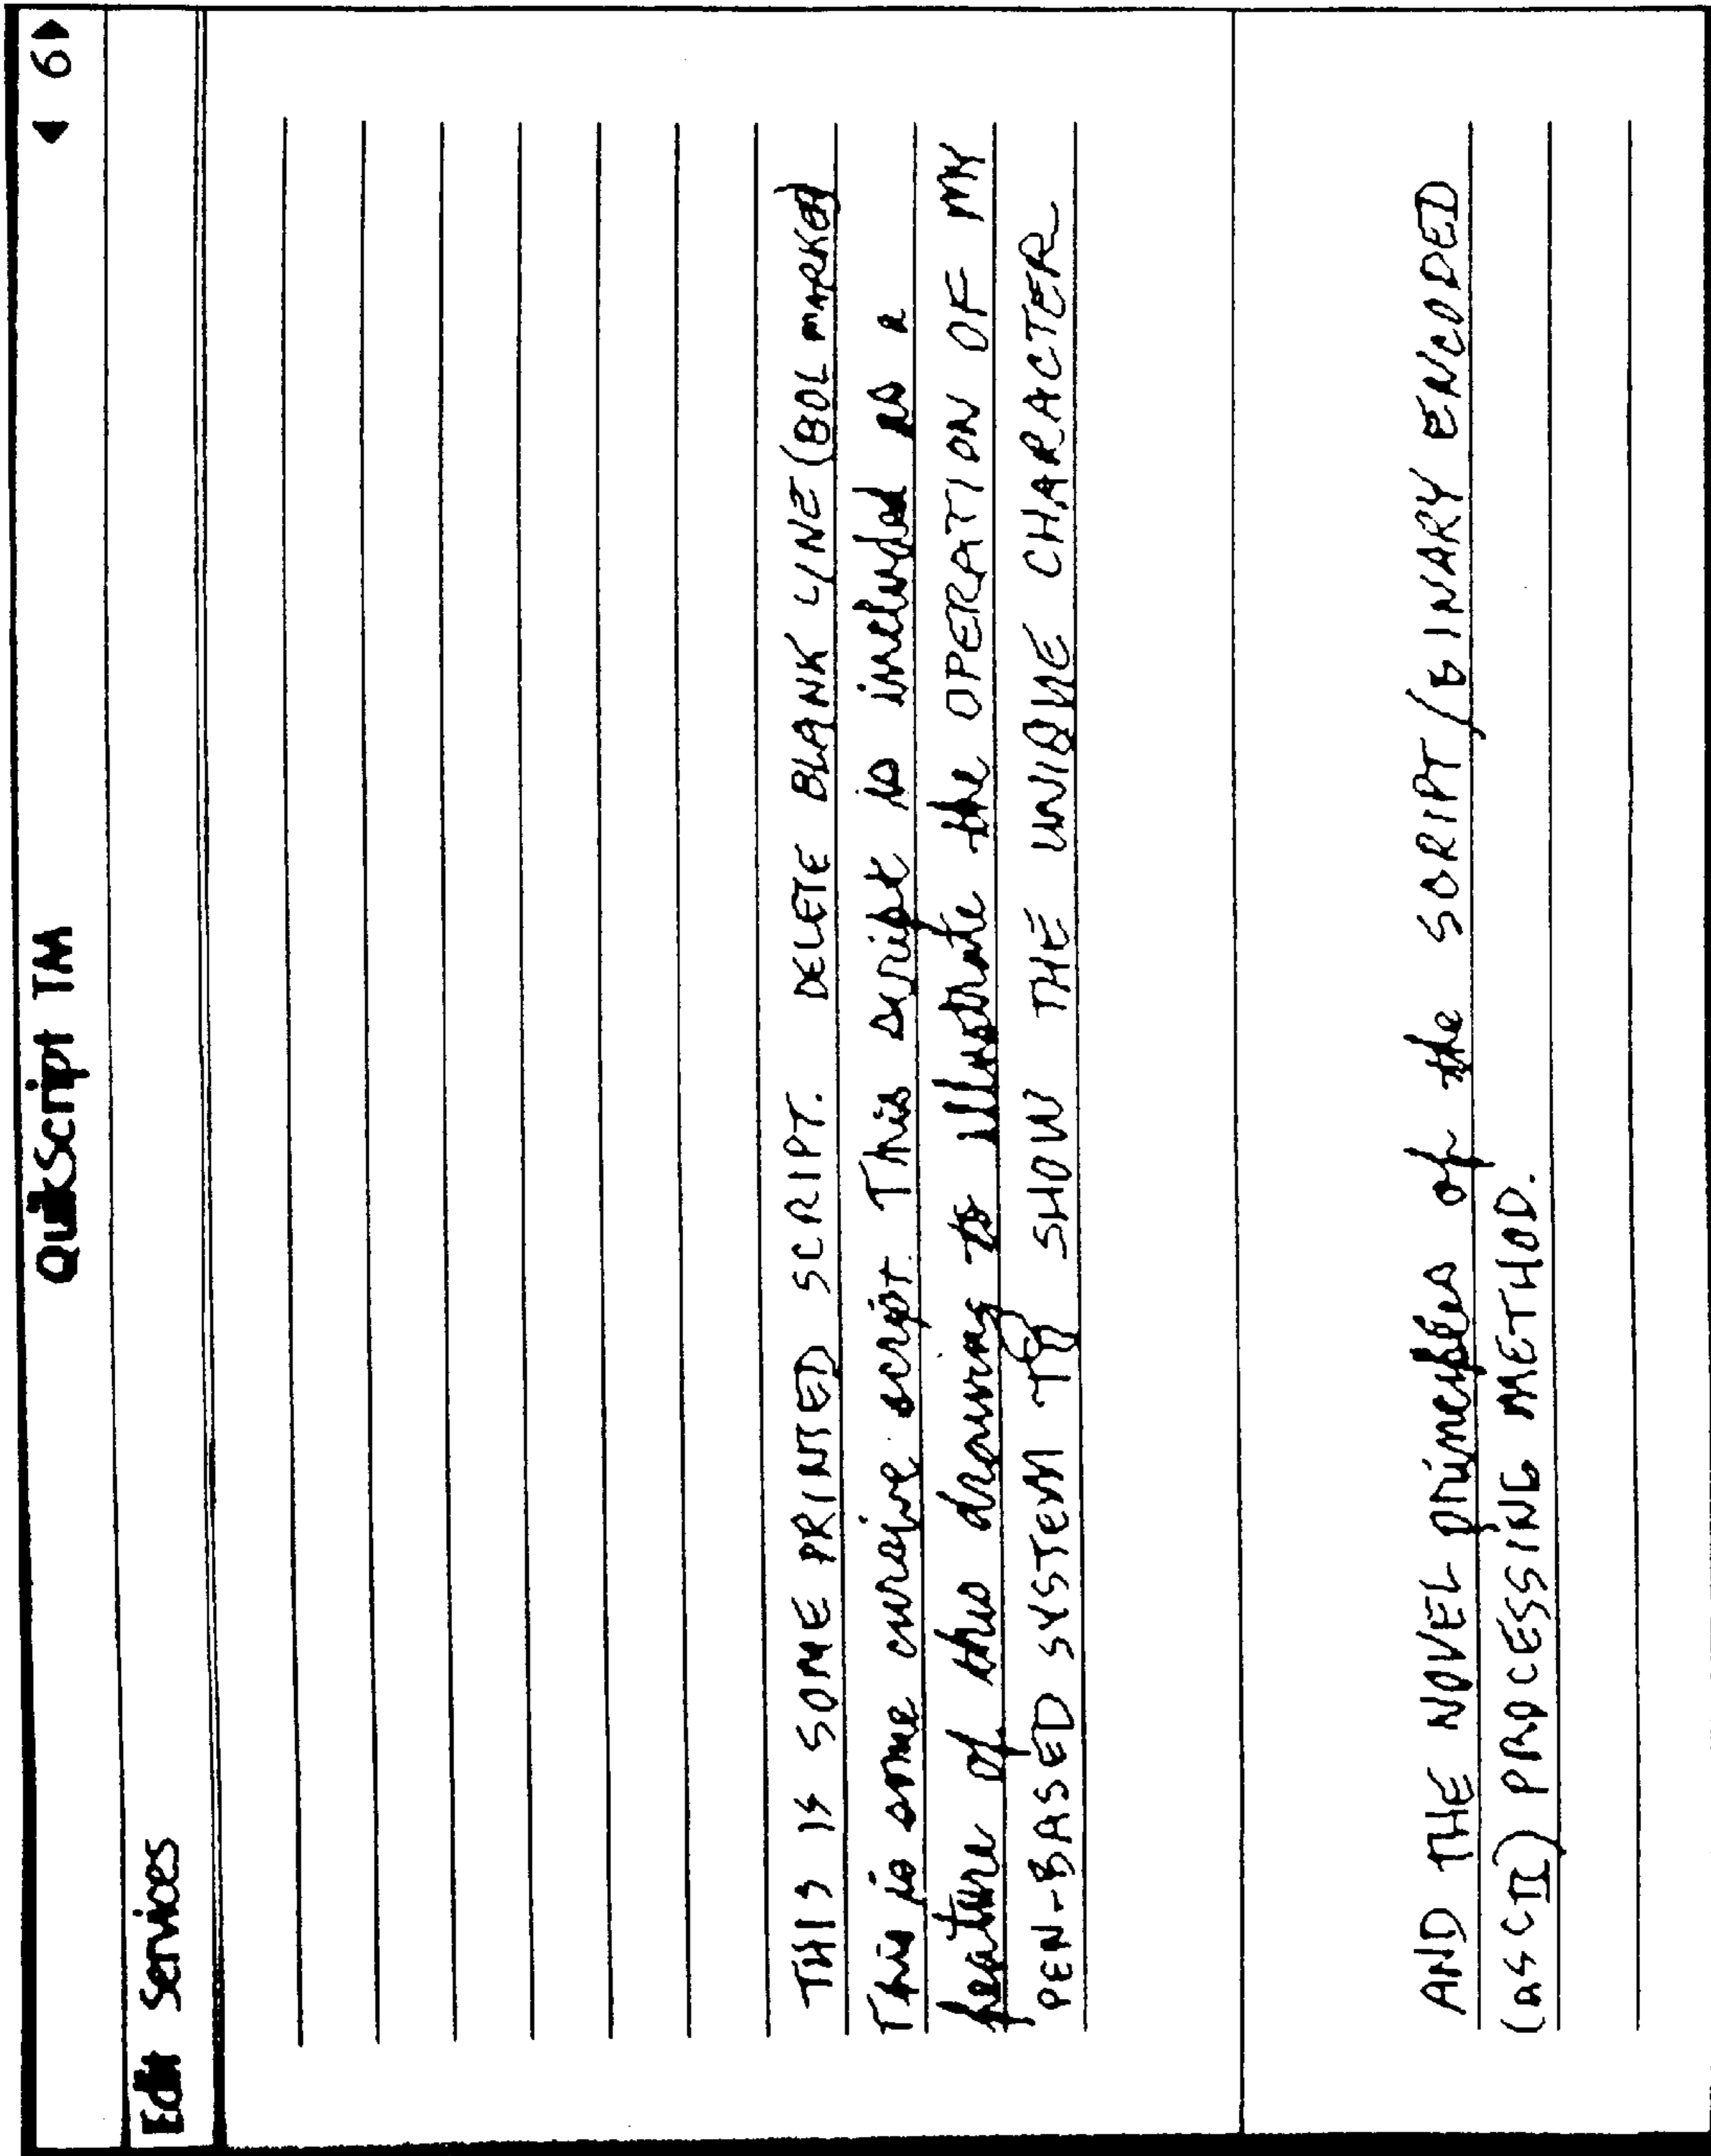 QuikScript TM ◀ 6 ▶
Edit Services
THIS IS SOME PRINTED SCRIPT. DELETE BLANK LINE (BOL MARKER)
This is some cursive script. This script is included as a
feature of this drawing to illustrate the OPERATION OF MY
PEN-BASED SYSTEM TO SHOW THE UNIQUE CHARACTER
AND THE NOVEL principles of the SCRIPT/BINARY ENCODED
(ASCII) PROCESSING METHOD.